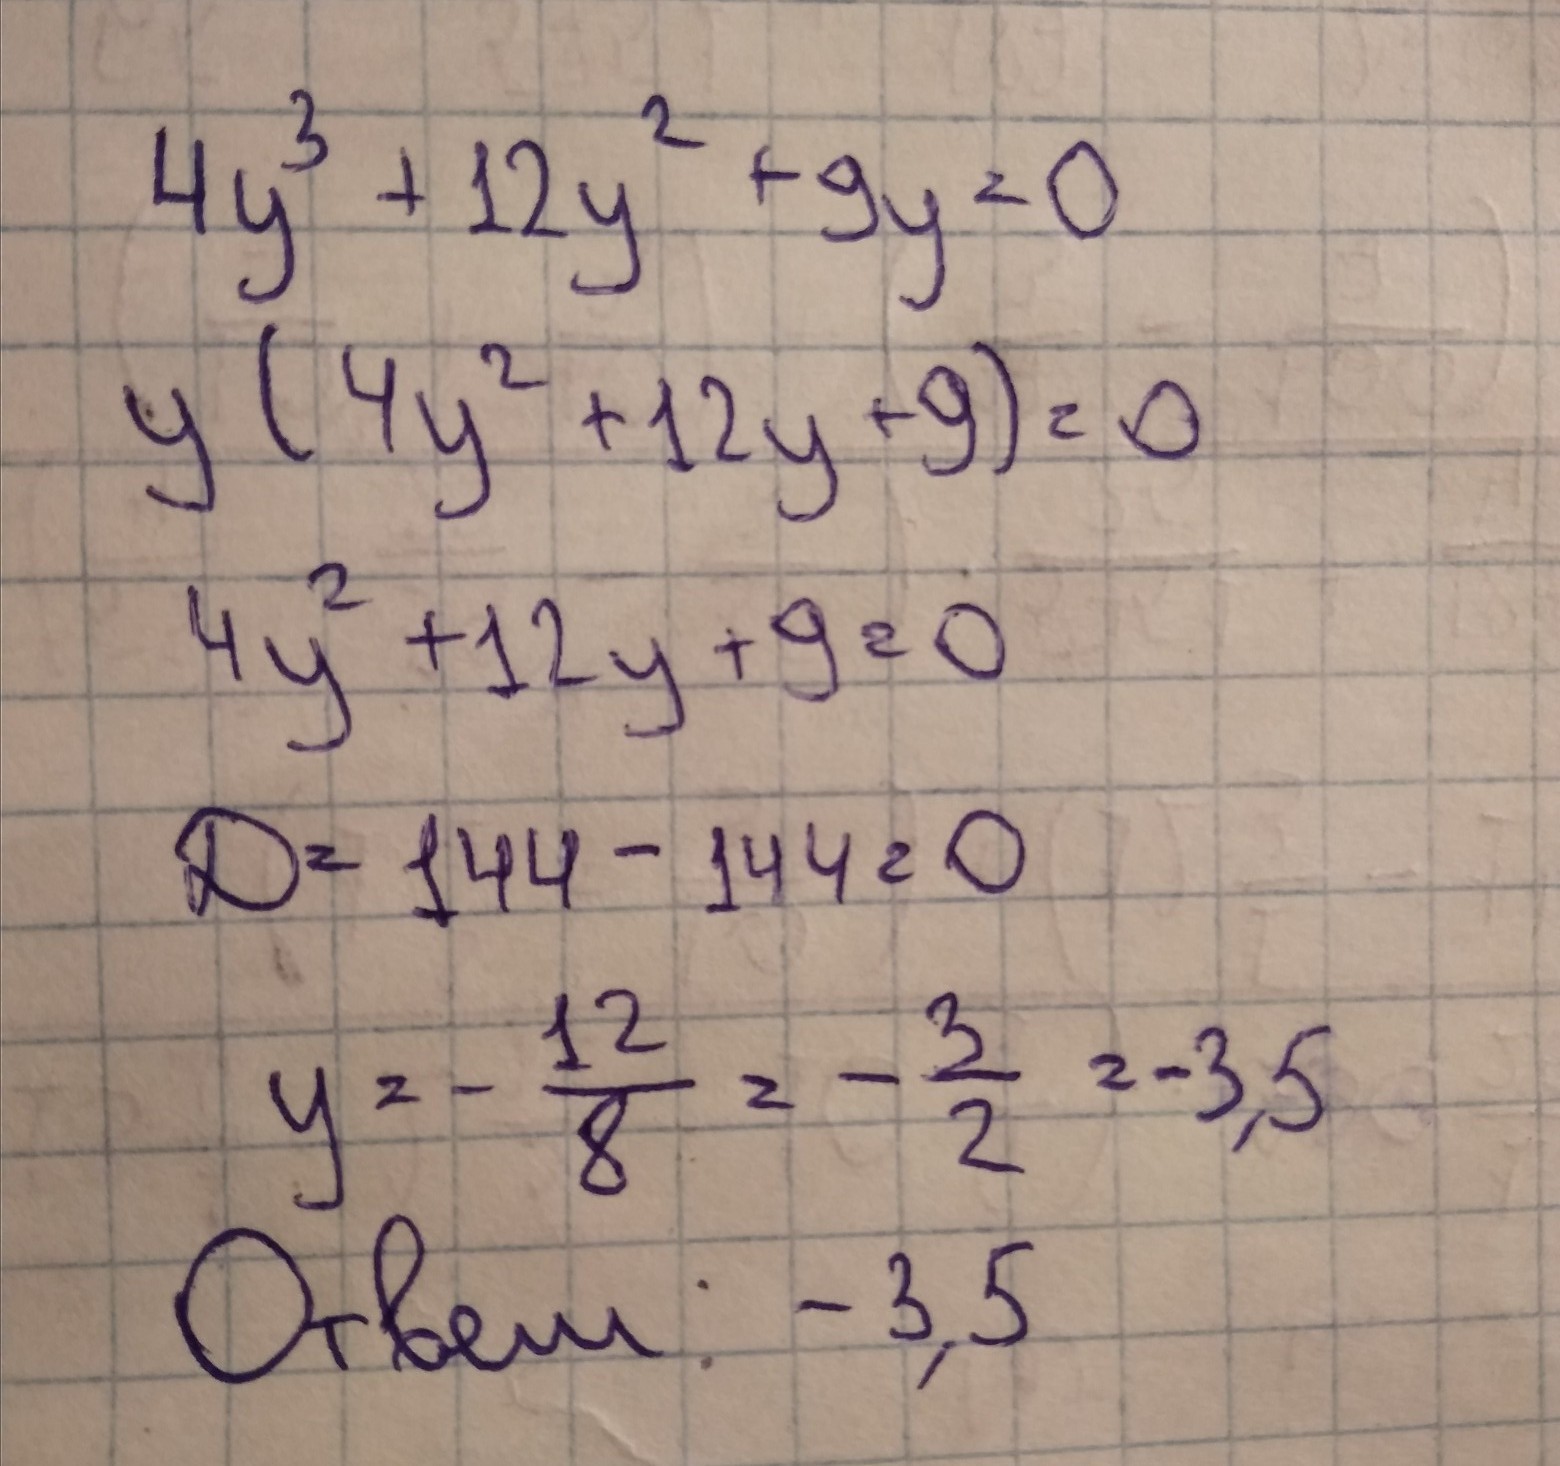 4y³ + 12y² + 9y = 0
y(4y² + 12y + 9) = 0
4y² + 12y + 9 = 0
D = 144 - 144 = 0
y = - 12/8 = - 3/2 = -3,5
Ответ: -3,5